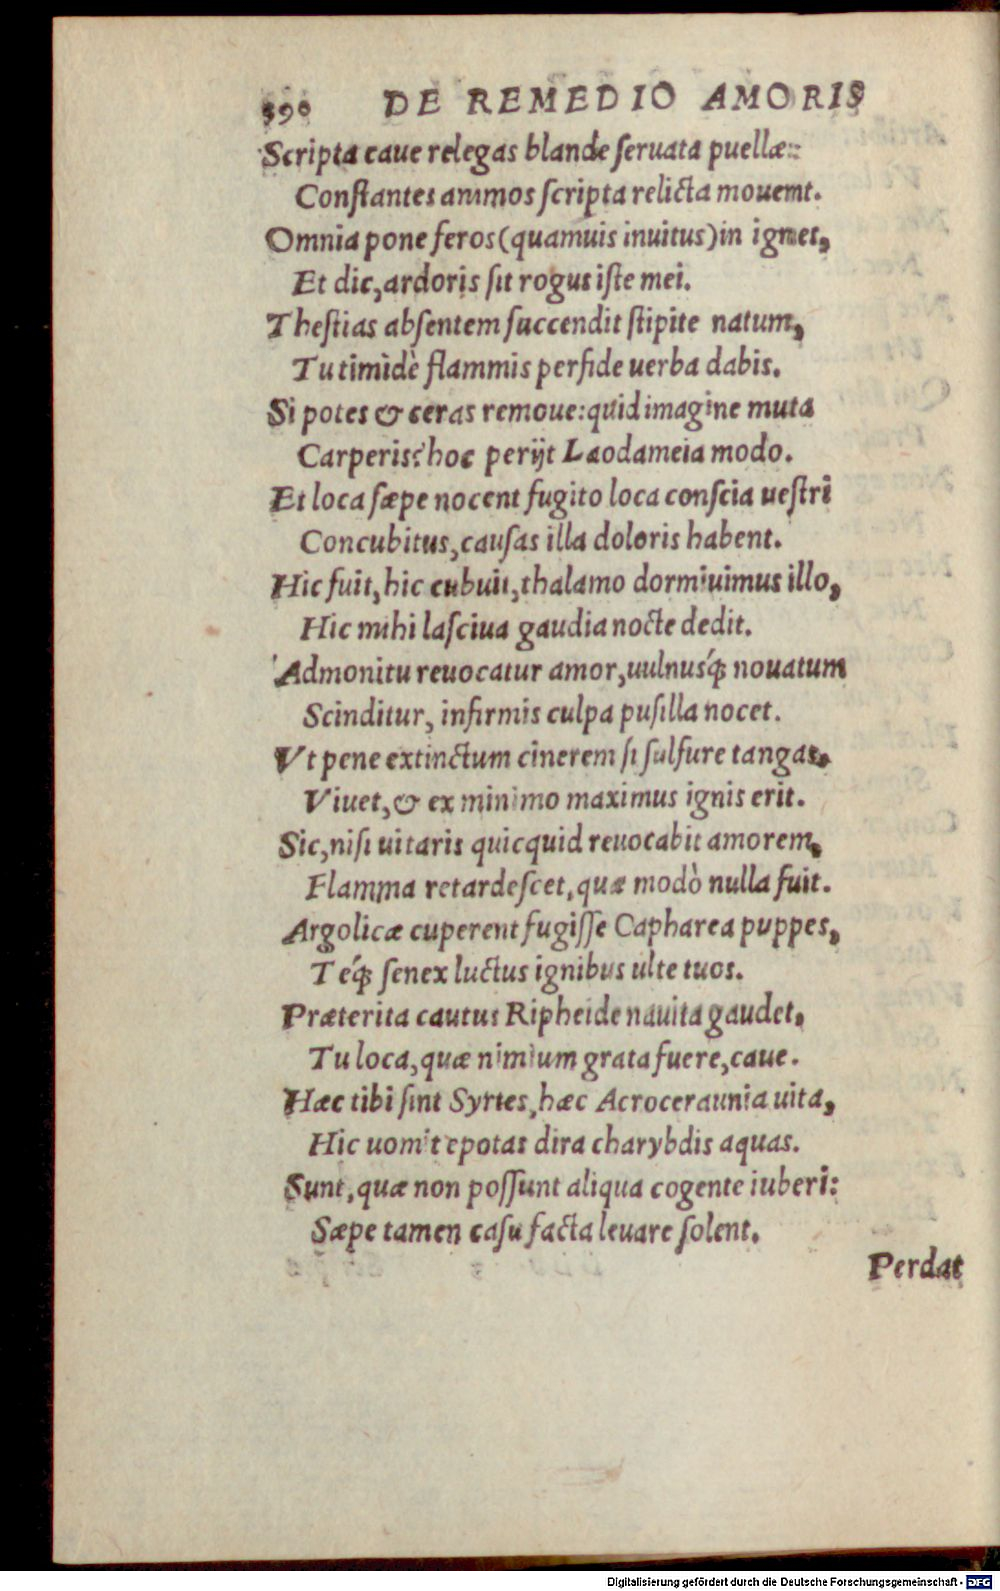 390 DE REMEDIO AMORIS
Scripta caue relegas blande ſeruata puellæ:
Conſtantes animos ſcripta relicta mouent.
Omnia pone feros (quamuis inuitus) in ignes,
Et dic, ardoris ſit rogus iſte mei.
Theſtias abſentem ſuccendit ſtipite natum,
Tu timidè flammis perfide uerba dabis.
Si potes & ceras remoue: quid imagine muta
Carperis? hoc perijt Laodameia modo.
Et loca ſæpe nocent fugito loca conſcia ueſtri
Concubitus, cauſas illa doloris habent.
Hic fuit, hic cubuit, thalamo dormiuimus illo,
Hic mihi laſciua gaudia nocte dedit.
Admonitu reuocatur amor, uulnusq́; nouatum
Scinditur, infirmis culpa puſilla nocet.
Vt pene extinctum cinerem ſi ſulfure tangas,
Viuet, & ex minimo maximus ignis erit.
Sic, niſi uitaris quicquid reuocabit amorem,
Flamma retardeſcet, quæ modò nulla fuit.
Argolicæ cuperent fugiſſe Capharea puppes,
Teq́; ſenex luctus ignibus ulte tuos.
Præterita cautus Ripheide nauita gaudet,
Tu loca, quæ nimium grata fuere, caue.
Hæc tibi ſint Syrtes, hæc Acroceraunia uita,
Hic uomit epotas dira charybdis aquas.
Sunt, quæ non poſſunt aliqua cogente iuberi:
Sæpe tamen caſu facta leuare ſolent.
Perdat
Digitalisierung gefördert durch die Deutsche Forschungsgemeinschaft - DFG